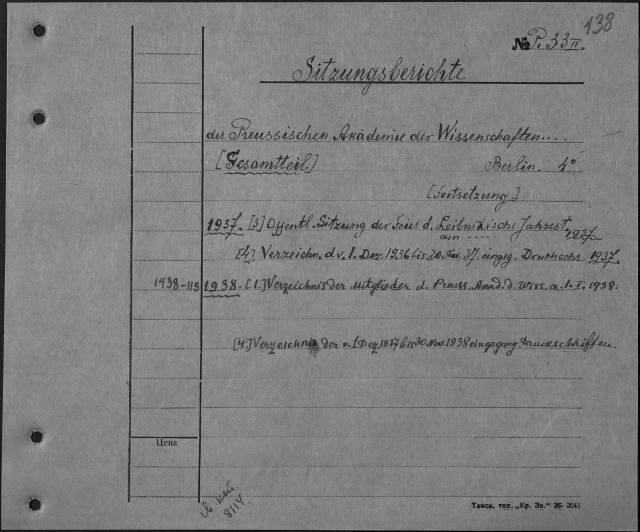 138
№ P. 33 II.
Sitzungsberichte
der Preussischen Akademie der Wissenschaften....
[Gesamtteil.] Berlin. 4°
[Fortsetzung.]
1937. [3] Öffentl. Sitzung der Feier d. Leibnizisch. Jahrest. 1937.
am ....
[4] Verzeichn. d. v. 1. Dez. 1936 bis 30. Nov. 37 eingeg. Druckschr. 1937.
1938-115 1938. [1.] Verzeichnis der Mitglieder d. Preuss. Akad. d. Wiss. a. 1. I. 1938.
[4.] Verzeichnis der v. 1 Dez 1937 bis 30 Nov. 1938 eingegang. Druckschriften.
Цена
8114
Томск, тип. „Кр. Зн."
3041